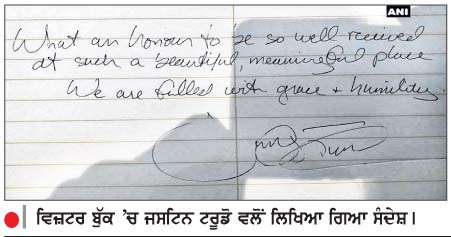 ANI
What an honour to be so well received
at such a beautiful, meaningful place
We are filled with grace + humility.
ਵਿਜ਼ਟਰ ਬੁੱਕ 'ਚ ਜਸਟਿਨ ਟਰੂਡੋ ਵਲੋਂ ਲਿਖਿਆ ਗਿਆ ਸੰਦੇਸ਼।